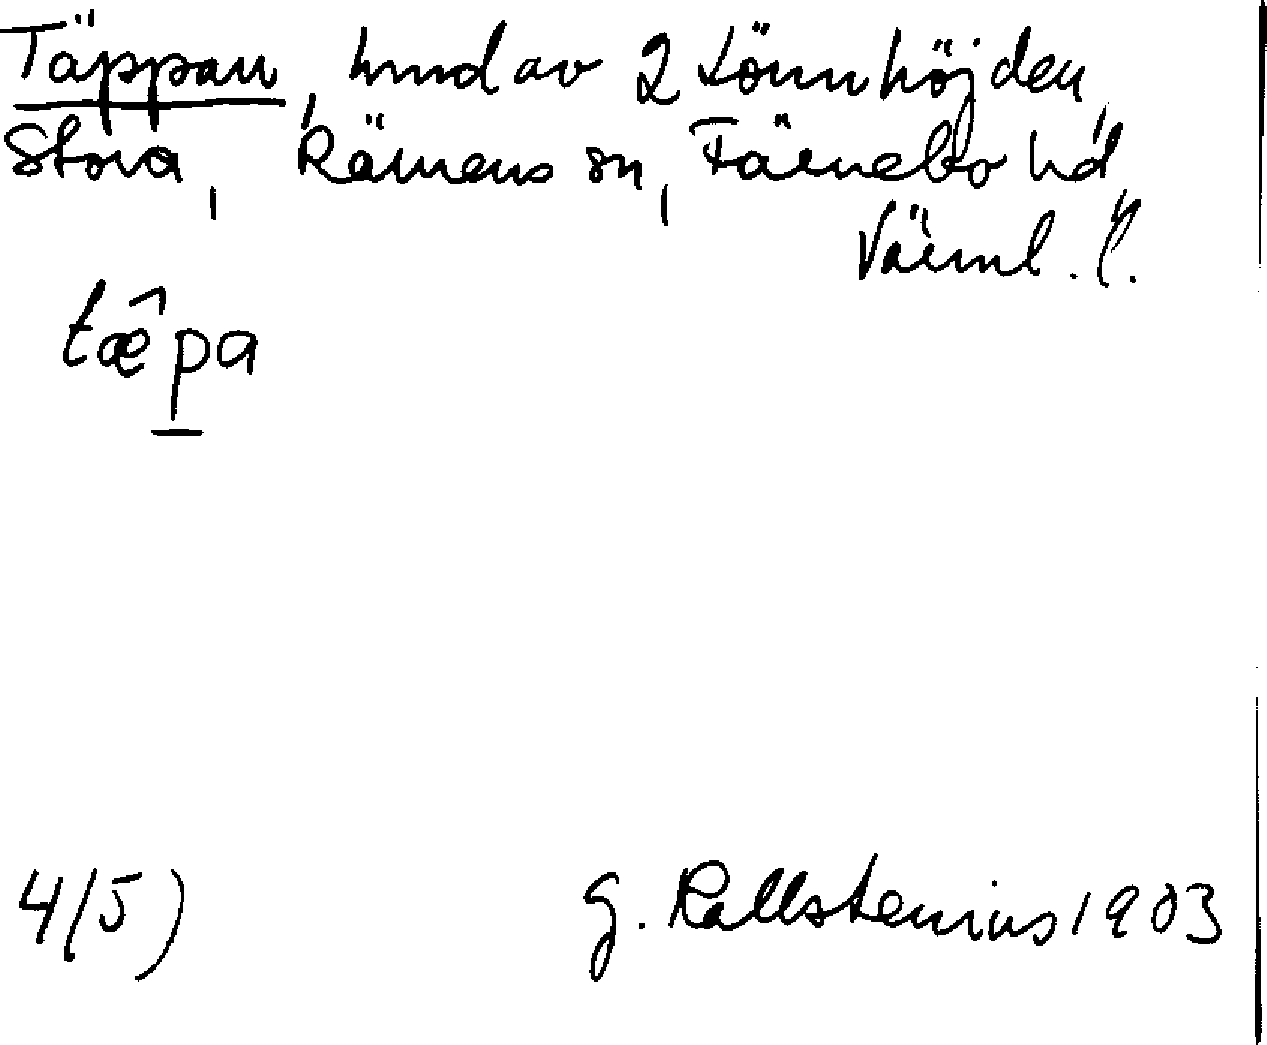 Täppan, hmd av 2 Lönnhöjden,
Stora, Rämens sn, Färnebo hd,
Värml. l.
tæ̂pa
4(5) G. Kallstenius 1903